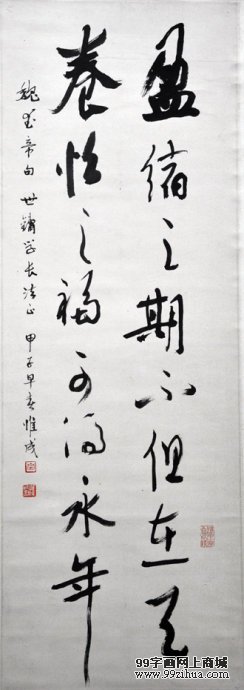 盈缩之期不但在天
养怡之福可得永年
魏武帝句 世镛学长法正 甲子早春 惟成
99字画网上商城
www.99zihua.com